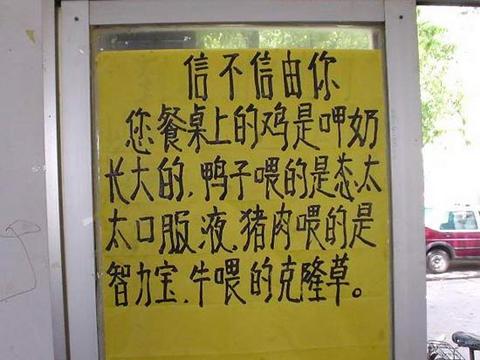 信不信由你
您餐桌上的鸡是呷奶
长大的，鸭子喂的是态太
太口服液，猪肉喂的是
智力宝，牛喂的克隆草。